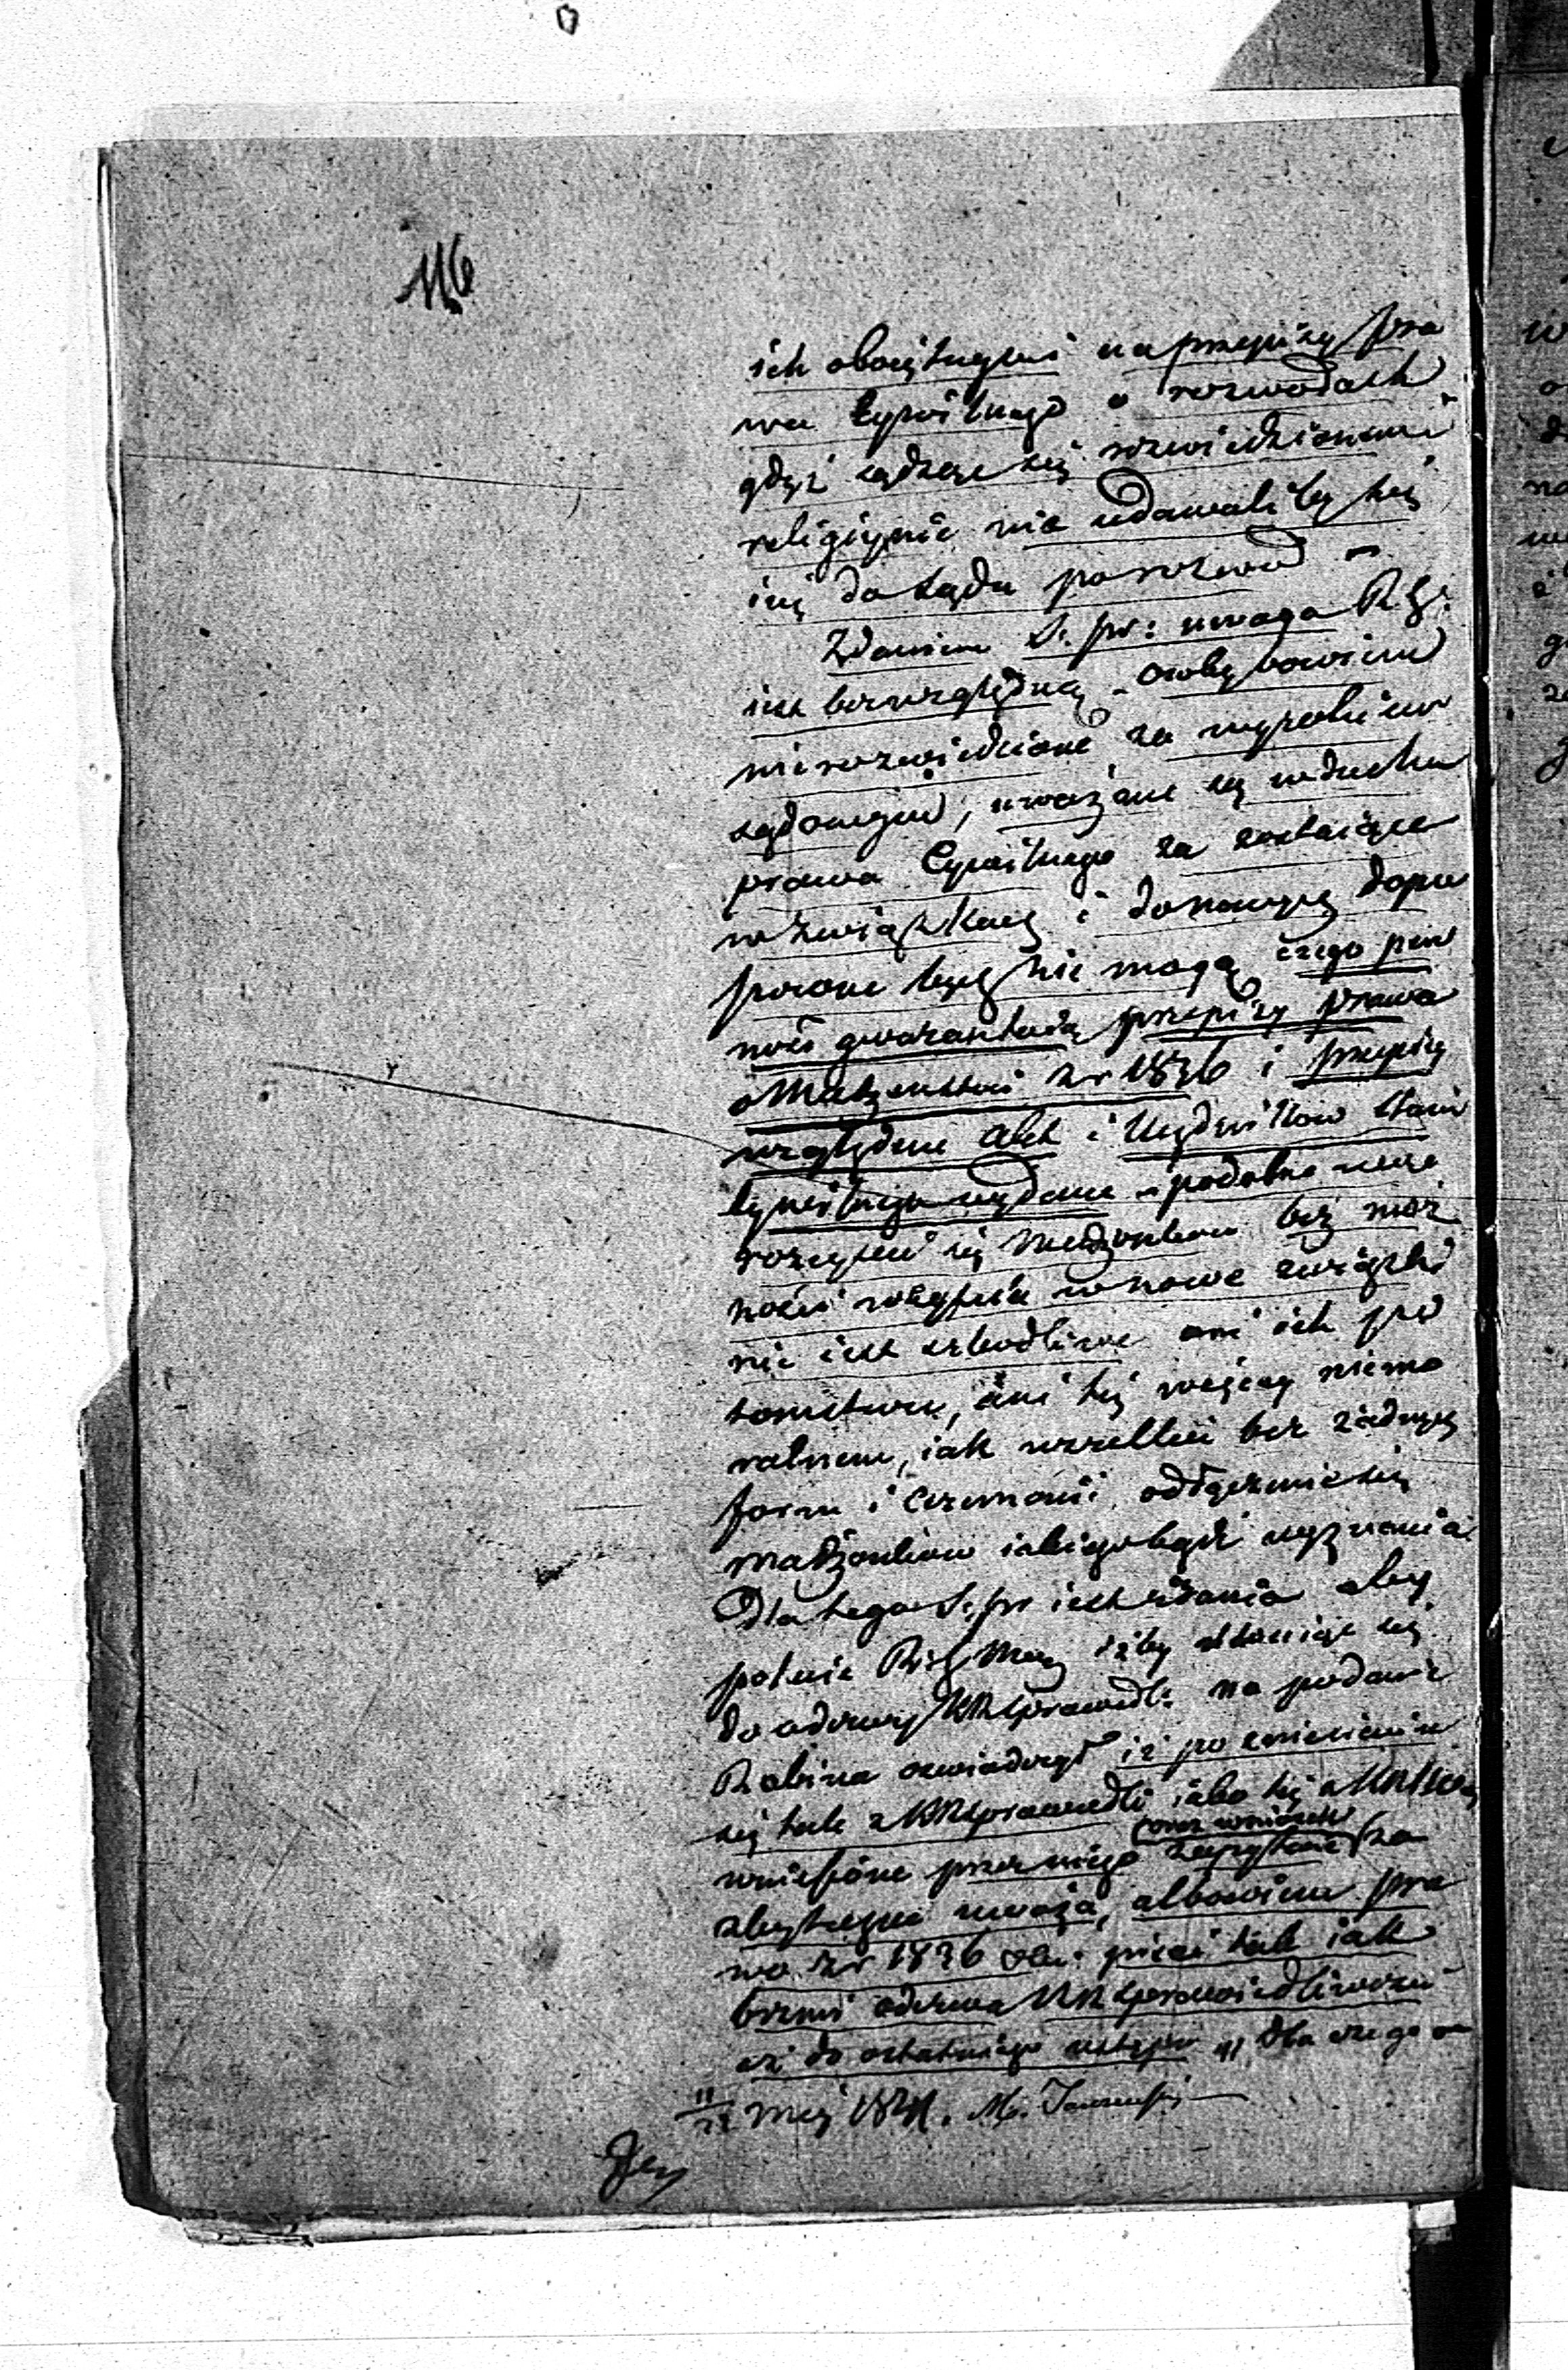 116
ich oboiętnymi na przepisy pra
wa Cywilnego o rozwodach
gdyż sądząc się rozwiedzionemi
religiynie nie udawaliby się
iuż do Sądu po rozwód
Zdaniem S. pr: uwaga R. G.
iest bezwzględną Osoby bowiem
nierozwiedzione za wyrokiem
sądowym, uważane są w duchu
prawa Cywilnego za zostaiące
w związkach i do nowych dopu
szczone być nie mogą czego pew
ność gwarantuią przepisy prawa
o Małżeństwie z r 1836 i przepisy
względem akt i Urzędników Stanu
Cywilnego wydane podobne
rozeyście się Małżonków bez moż
ności weyścia w nowe związki
nie iest szkodliwe ani ich po
tomstwu, ani też więcey niemo
ralnem, iak wszelkie bez żadnych
form i Ceremonii odłączenie się
małżonków iakiegobądź wyznania
Dla tego S. pr iest zdania aby
polecić R. G. Maz iżby stosuiąc się
do odezwy KRSprawiedl: na podanie
Rabina oświadczył iż po zniesieniu
się tak z KRSprawiedli: iako też z
oraz wniosek
wniesione przez niego zapytanie za
zbyteczne uważa, albowiem pra
wo z r 1836 tak iak
brzmi odezwa KR Sprawiedliwości
aż do ostatniego ustępu "Dla czego
11/23 Maj 1841.